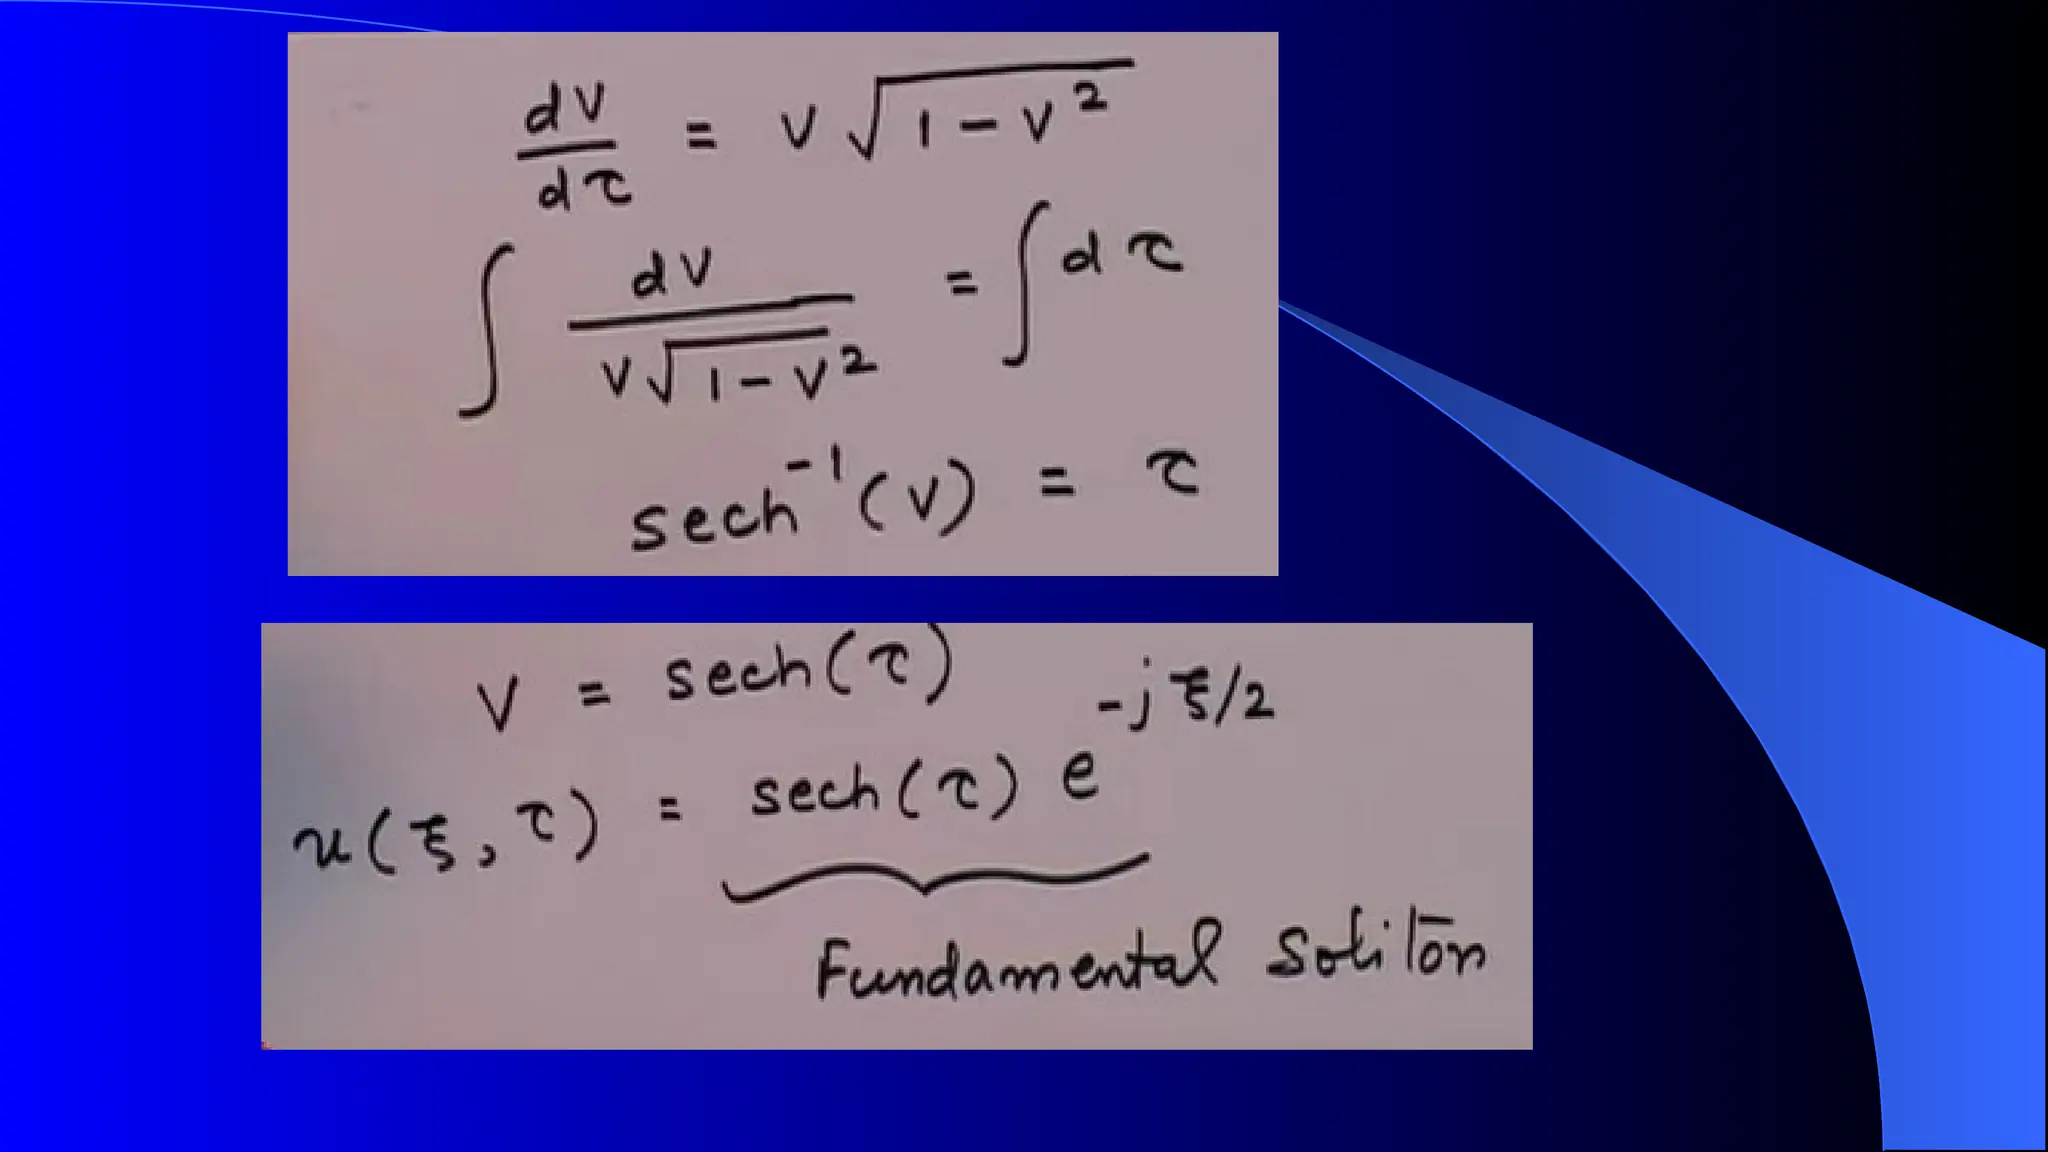 dV/dτ = V√(1-V²)
∫ dV/(V√(1-V²)) = ∫dτ
sech⁻¹(V) = τ
V = sech(τ)
u(ξ,τ) = sech(τ) e^(-jξ/2)
Fundamental Soliton